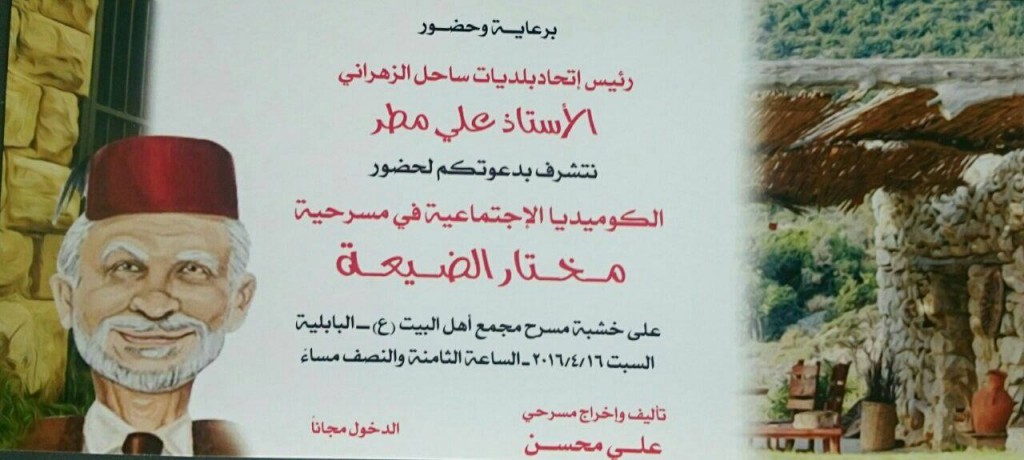 برعاية وحضور
رئيس إتحاد بلديات ساحل الزهراني
الأستاذ علي مطر
نتشرف بدعوتكم لحضور
الكوميديا الإجتماعية في مسرحية
مختار الضيعة
على خشبة مسرح مجمع أهل البيت (ع) - البابلية
السبت ٢٠١٦/٤/١٦ - الساعة الثامنة والنصف مساءً
تأليف وإخراج مسرحي
علي محسن
الدخول مجاناً